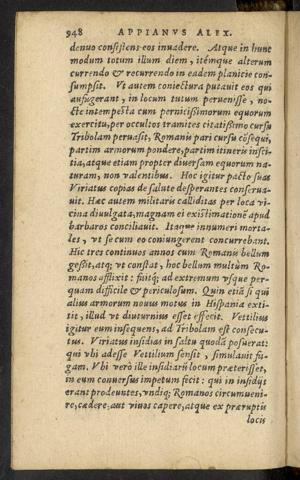 948 APPIANVS ALEX.
denuo consistens eos inuadere. Atque in hunc
modum totum illum diem, itémque alterum
currendo & recurrendo in eadem planicie con-
sumpsit. Vt autem coniectura putauit eos qui
aufugerant, in locum tutum peruenisse, no-
cte intempesta cum pernicissimorum equorum
exercitu, per occultos tramites citatissimo cursu
Tribolam peruasit, Romanis pari cursu cõsequi,
partim armorum pondere, partim itineris insci-
tia, atque etiam propter diuersam equorum na-
turam, non valentibus. Hoc igitur pacto suas
Viriatus copias de salute desperantes conserua-
uit. Hæc autem militaris calliditas per loca vi-
cina diuulgata, magnam ei existimationẽ apud
barbaros conciliauit. Itaque innumeri morta-
les, vt se cum eo coniungerent concurrebant.
Hic tres continuos annos cum Romanis bellum
gessit, atq; vt constat, hoc bellum multùm Ro-
manos afflixit: fuitq; ad extremum vsque per-
quam difficile & periculosum. Quin etiã si qui
alius armorum nouus motus in Hispania exti-
tit, illud vt diuturnius esset effecit. Vestilius
igitur eum insequens, ad Tribolam est consecu-
tus. Viriatus insidias in saltu quodã posuerat:
qui vbi adesse Vestilium sensit, simulauit fu-
gam. Vbi verò ille insidiarũ locum præterisset,
in eum conuersus impetum fecit: qui in insidijs
erant prodeuntes, vndiq; Romanos circumueni-
re, cædere, aut viuos capere, atque ex præruptis
locis